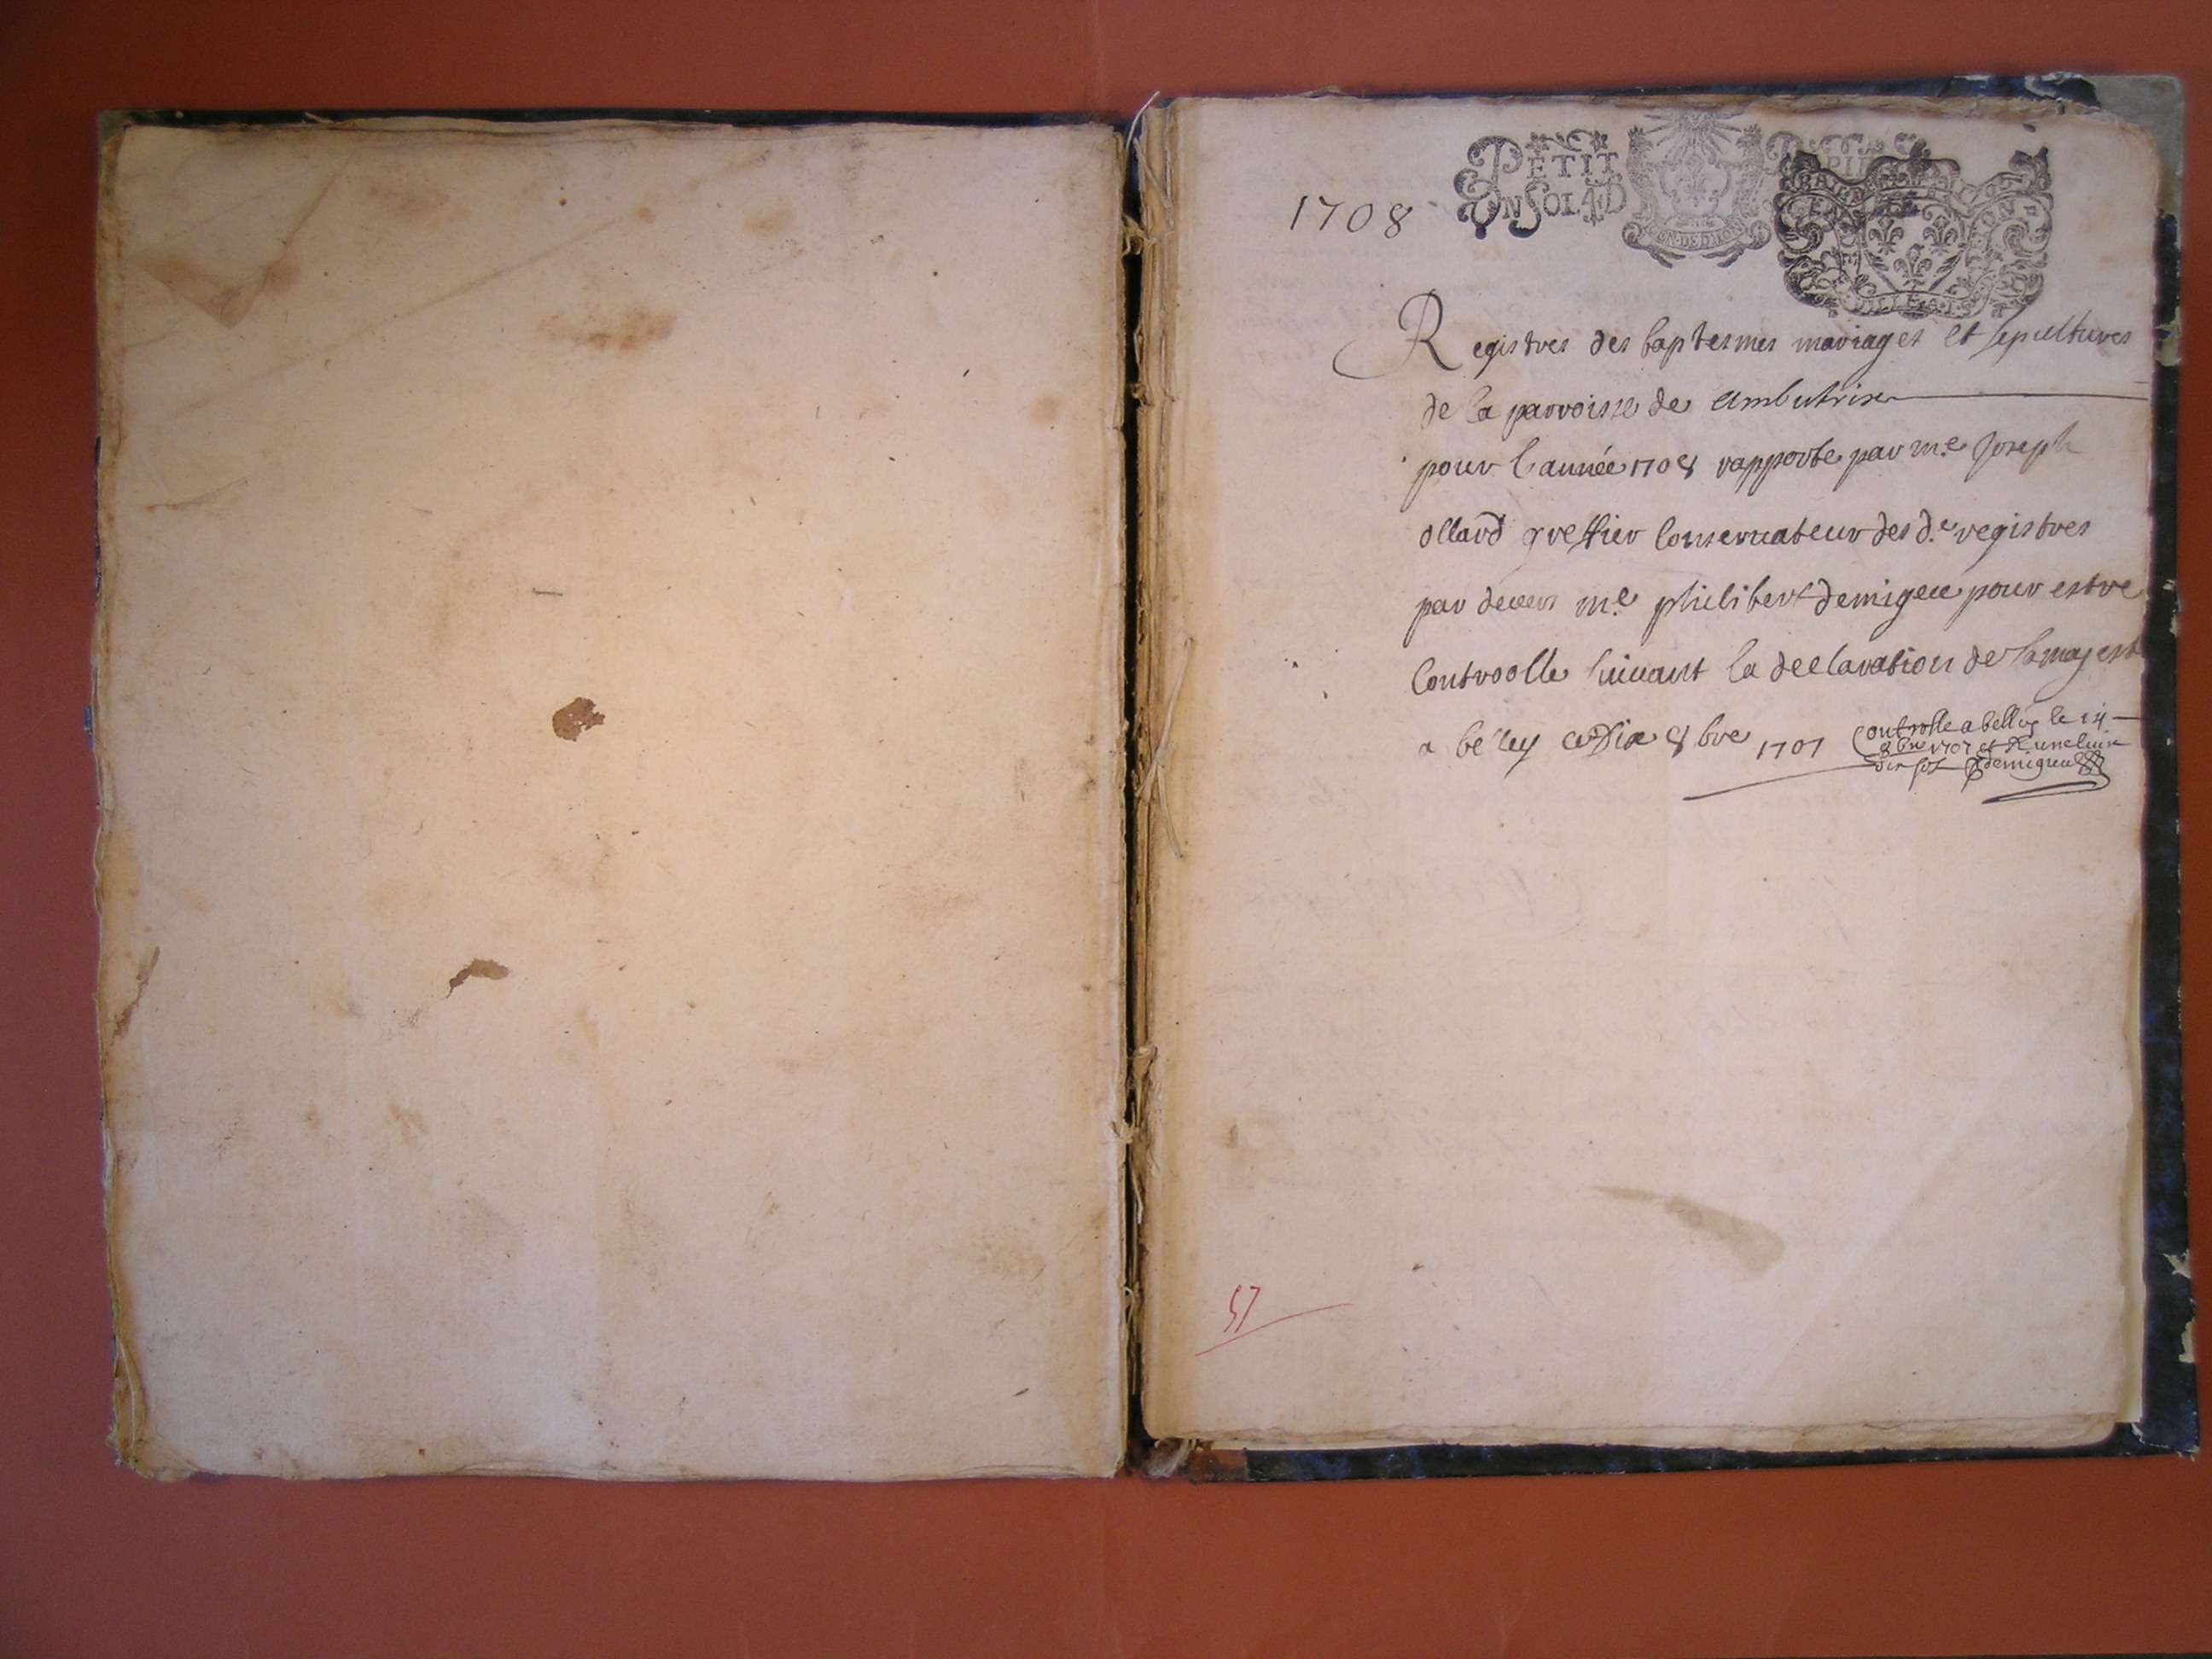 1708
PETIT PAPIER
UN SOL 4 D
GEN. DE DIION
Registres des baptesmes mariages et sepultures
de la parroisse de Ambutrix
pour l'année 1708 rapporte par me Joseph
ollard greffier Conservateur des d. registres
par devers me philibert demigieu pour estre
Controolle suivant la declaration de sa majesté
a beley ce Dix 8bre 1707
Controlle a belley le 14
8bre 1707 et R
dix sols demigieu
57